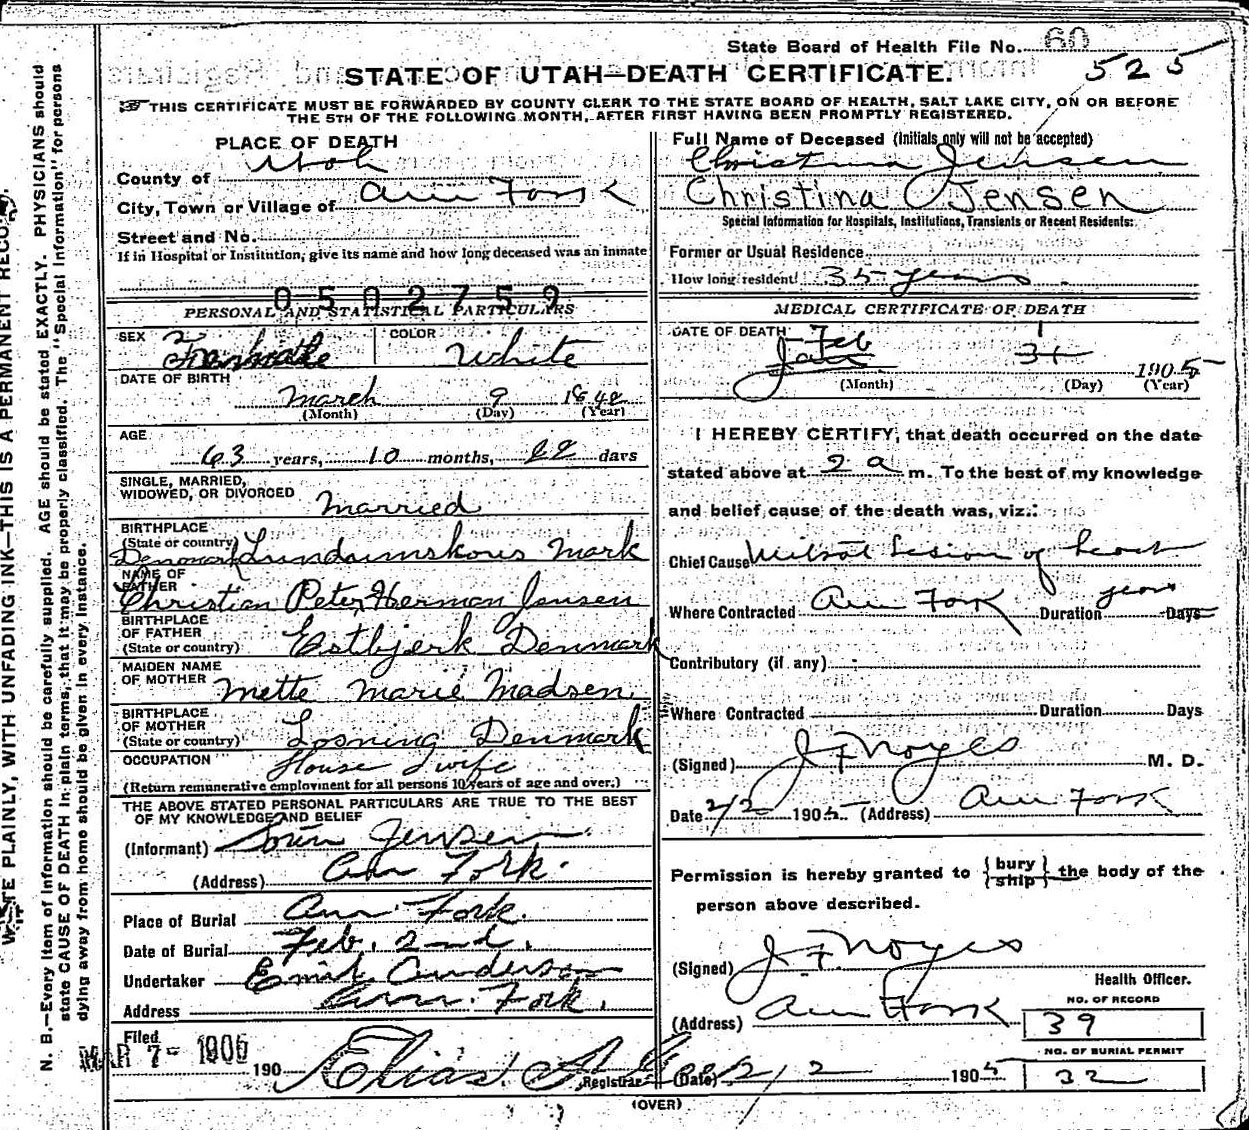 State Board of Health File No. 60
525
STATE OF UTAH—DEATH CERTIFICATE.
THIS CERTIFICATE MUST BE FORWARDED BY COUNTY CLERK TO THE STATE BOARD OF HEALTH, SALT LAKE CITY, ON OR BEFORE
THE 5TH OF THE FOLLOWING MONTH, AFTER FIRST HAVING BEEN PROMPTLY REGISTERED.
PLACE OF DEATH
County of Utah
City, Town or Village of Am Fork
Street and No.
If in Hospital or Institution, give its name and how long deceased was an inmate
0502759
PERSONAL AND STATISTICAL PARTICULARS
SEX Female
COLOR White
DATE OF BIRTH
March 9 18
(Month) (Day) (Year)
AGE
63 years, 10 months, 22 days
SINGLE, MARRIED,
WIDOWED, OR DIVORCED Married
BIRTHPLACE
(State or country)
Denmark Mark
NAME OF
FATHER
Christian Peter Herman Jensen
BIRTHPLACE
OF FATHER
(State or country) Estbjerk Denmark
MAIDEN NAME
OF MOTHER Mette Marie Madsen
BIRTHPLACE
OF MOTHER
(State or country) Losning Denmark
OCCUPATION House wife
(Return remunerative employment for all persons 10 years of age and over.)
THE ABOVE STATED PERSONAL PARTICULARS ARE TRUE TO THE BEST
OF MY KNOWLEDGE AND BELIEF
(Informant) Sorin Jensen
(Address) Am Fork.
Place of Burial Am. Fork.
Date of Burial Feb. 2nd.
Undertaker Emil Anderson
Address Am. Fork.
Filed
MAR 7- 1905 190 Elias A. Gee
Registrar
Full Name of Deceased (Initials only will not be accepted)
Christina Jensen
Christina Jensen
Special Information for Hospitals, Institutions, Transients or Recent Residents:
Former or Usual Residence
How long resident? 35 years
MEDICAL CERTIFICATE OF DEATH
DATE OF DEATH Feb 1
Jan 31 1905
(Month) (Day) (Year)
I HEREBY CERTIFY, that death occurred on the date
stated above at 2 a m. To the best of my knowledge
and belief cause of the death was, viz.:
Chief Cause Mitral Lesion of heart
Where Contracted Am Fork Duration years Days
Contributory (if any)
Where Contracted Duration Days
(Signed) J F Noyes M. D.
Date 2/2 1905 (Address) Am Fork
Permission is hereby granted to {bury ship} the body of the
person above described.
(Signed) J. F. Noyes
Health Officer.
(Address) Am Fork
NO. OF RECORD
39
NO. OF BURIAL PERMIT
32
(Date) 2/2 1905
(OVER)
WRITE PLAINLY, WITH UNFADING INK—THIS IS A PERMANENT RECORD.
N. B.—Every item of information should be carefully supplied. AGE should be stated EXACTLY. PHYSICIANS should
state CAUSE OF DEATH in plain terms, that it may be properly classified. The "Special Information" for persons
dying away from home should be given in every instance.